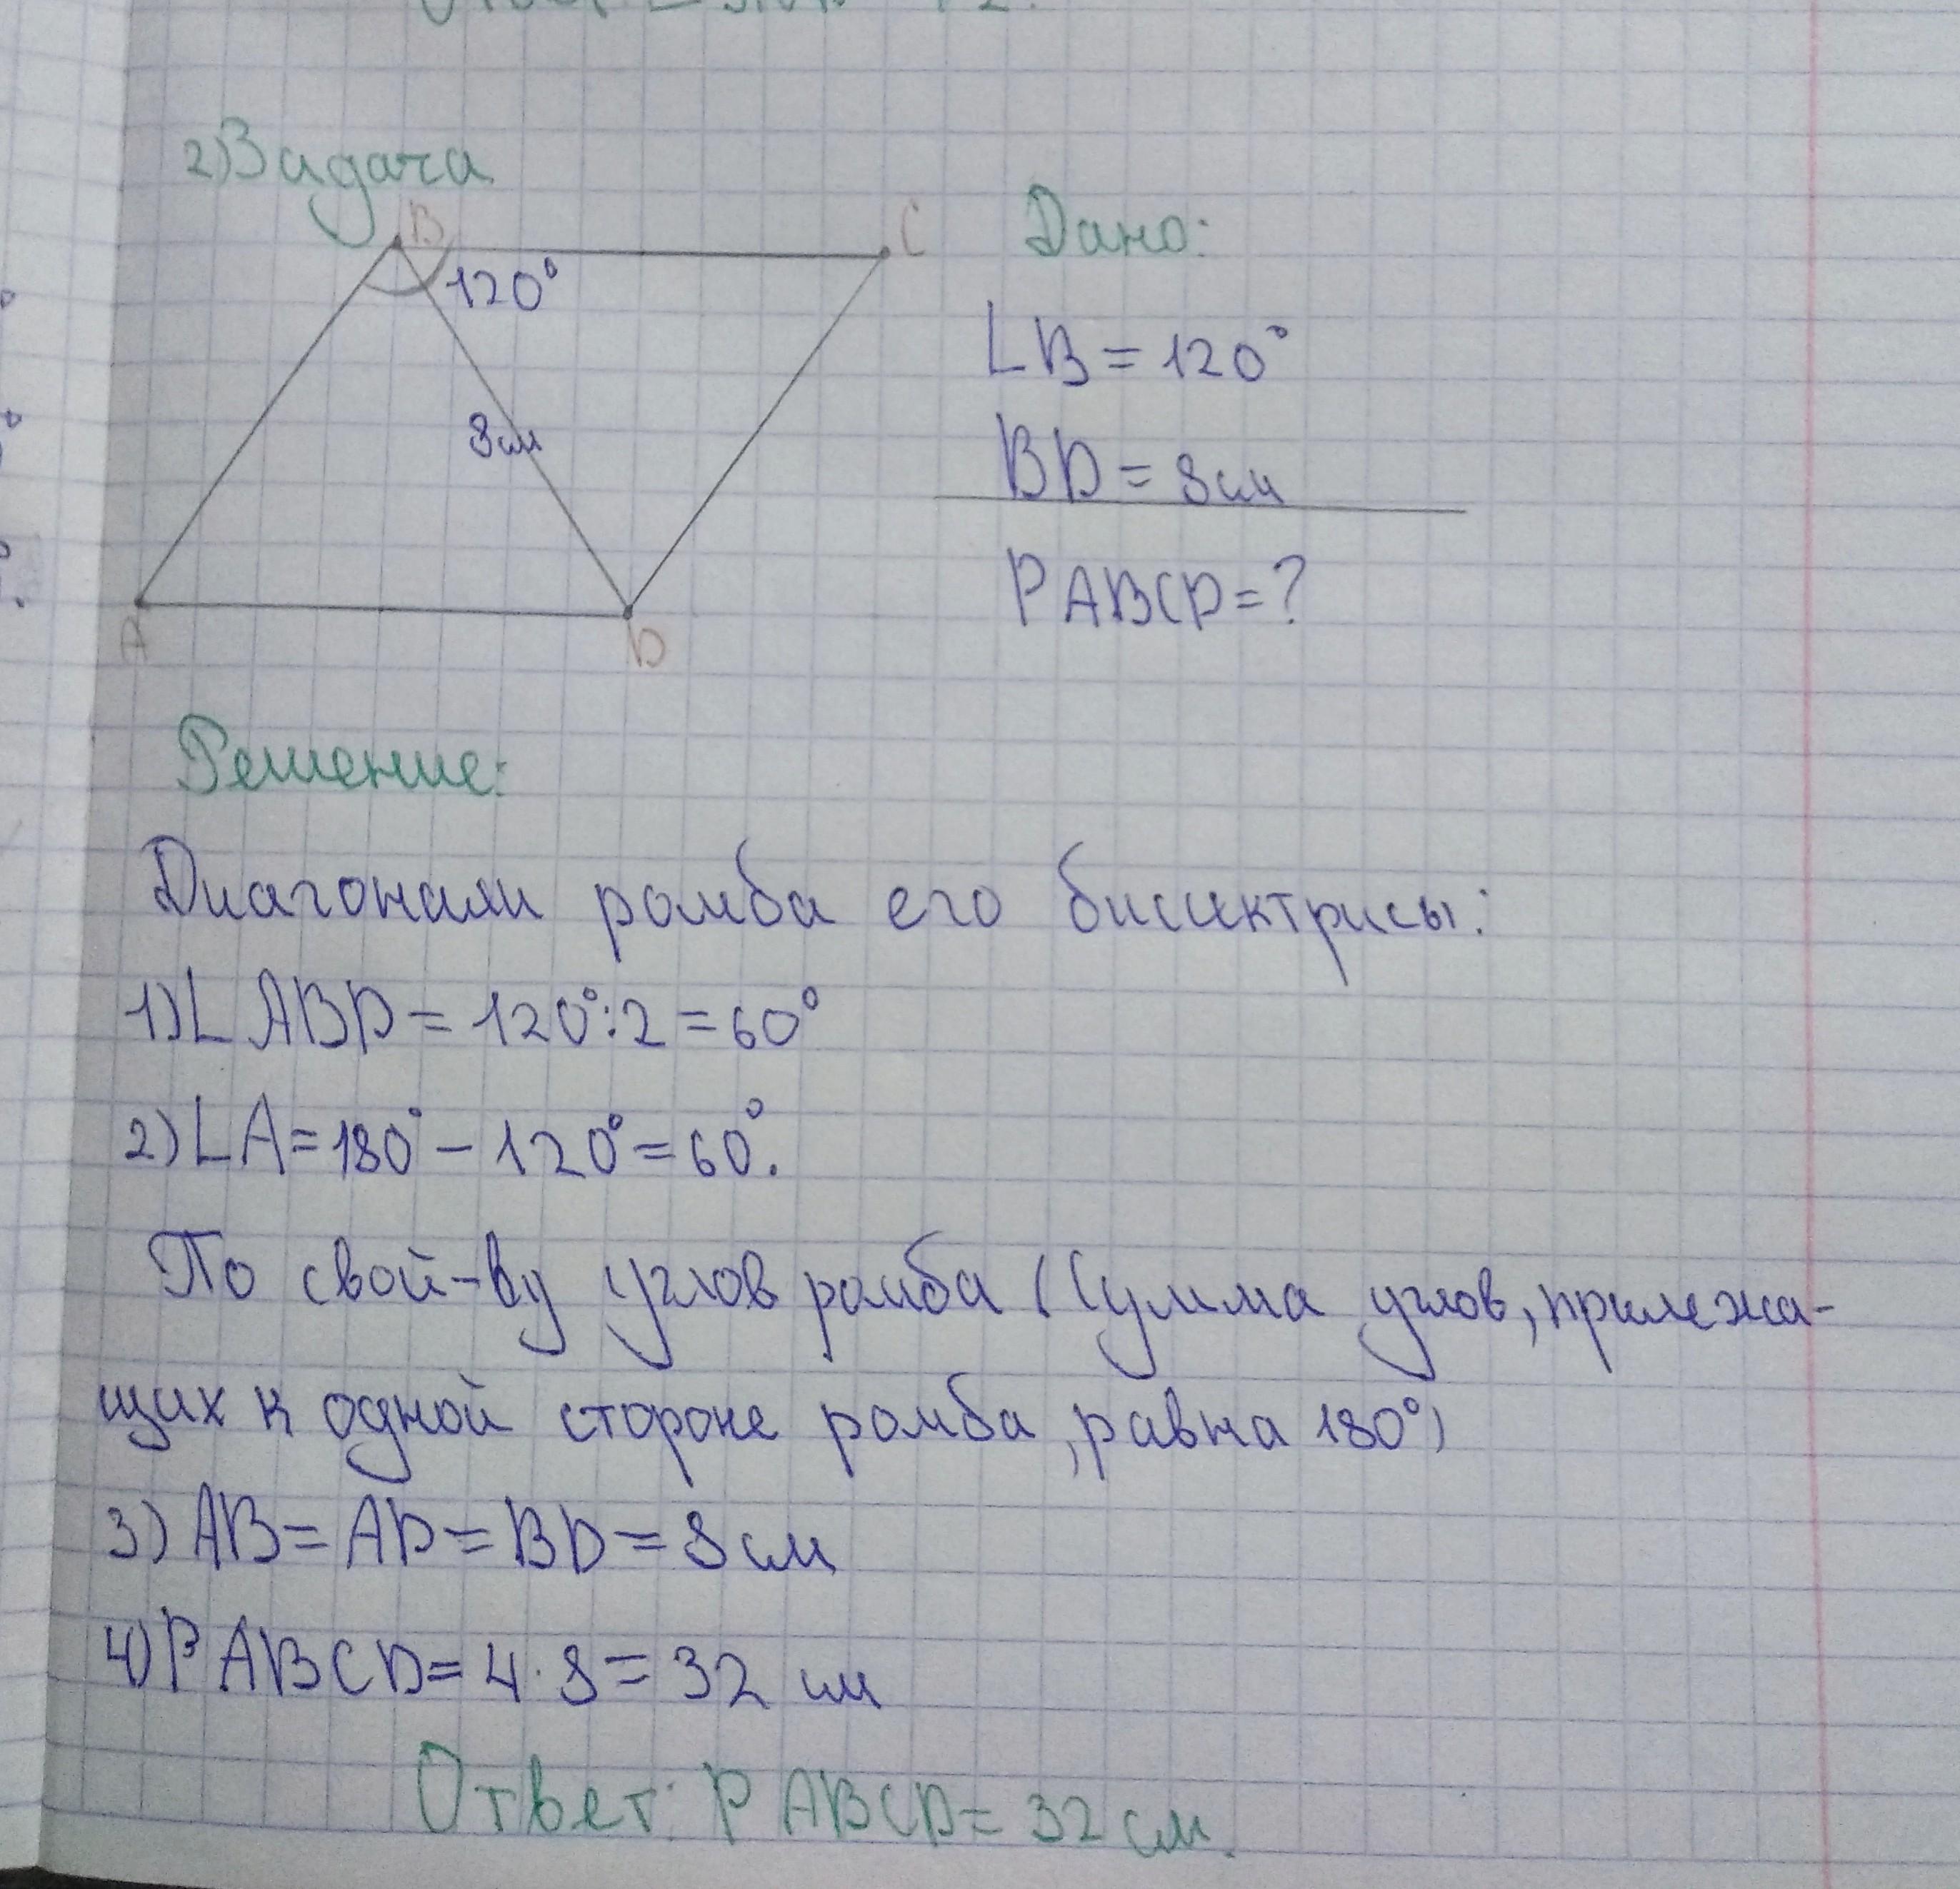 2) Задача
B
C
120°
8 см
A
D
Дано:
∠B = 120°
BD = 8 см
PABCD = ?
Решение:
Диагонали ромба его биссектрисы:
1) ∠ABD = 120° : 2 = 60°
2) ∠A = 180° - 120° = 60°.
По свой-ву углов ромба (Сумма углов, прилежа-
щих к одной стороне ромба, равна 180°)
3) AB = AD = BD = 8 см
4) PABCD = 4 · 8 = 32 см
Ответ: PABCD = 32 см.